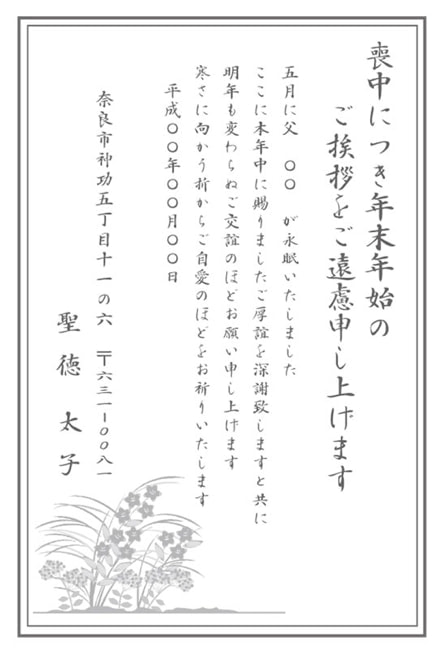 喪中につき年末年始の
ご挨拶をご遠慮申し上げます
五月に父 〇〇 が永眠いたしました
ここに本年中に賜りましたご厚誼を深謝致しますと共に
明年も変わらぬご交誼のほどお願い申し上げます
寒さに向かう折からご自愛のほどをお祈りいたします
平成〇〇年〇〇月〇〇日
奈良市神功五丁目十一の六 〒六三一ー〇〇八一
聖徳 太子